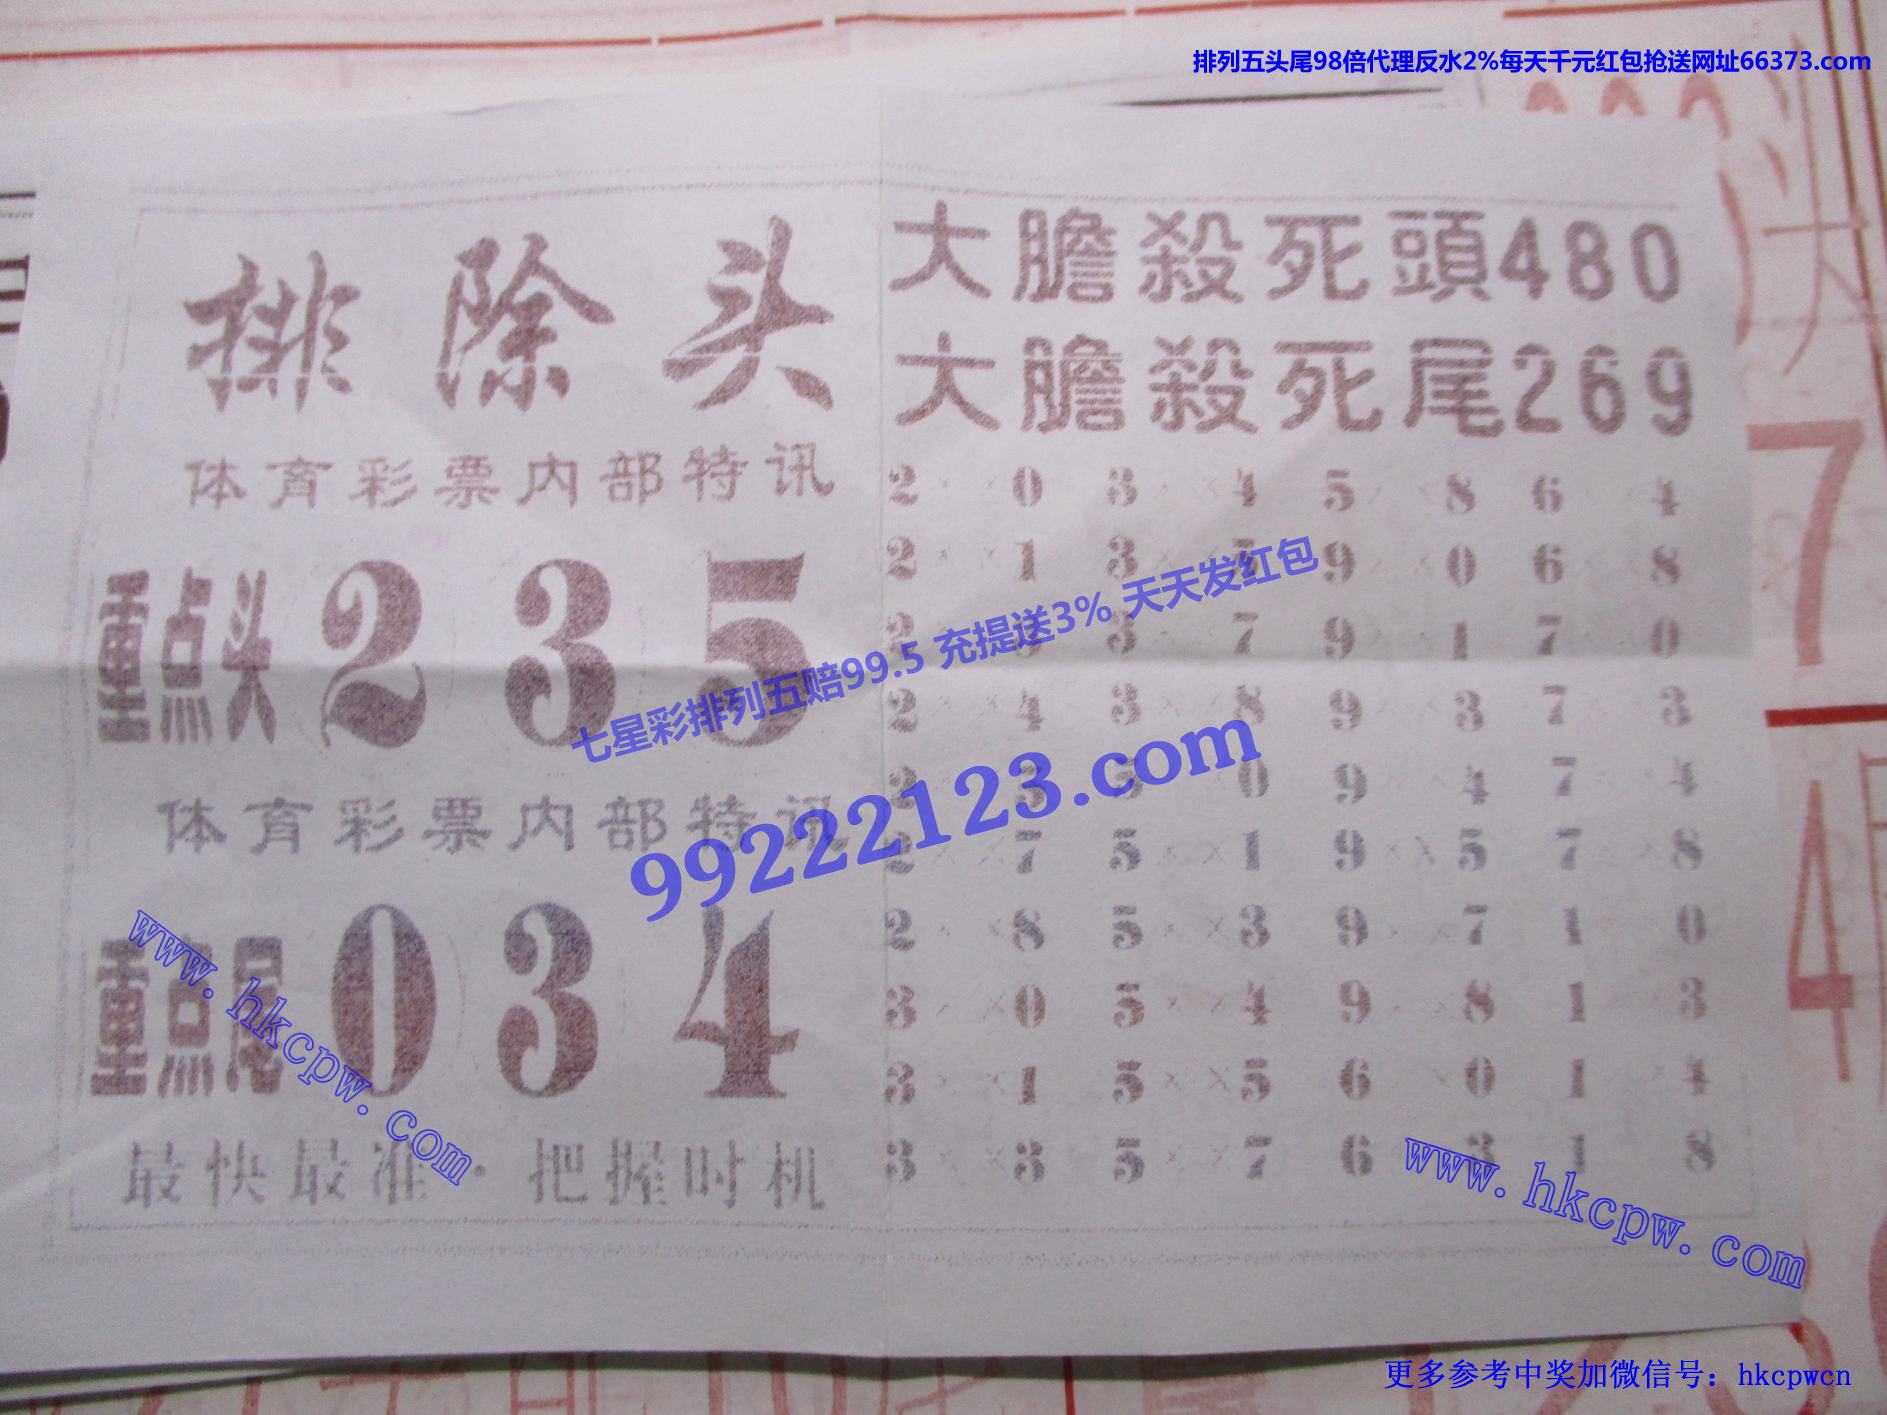 排列五头尾98倍代理反水2%每天千元红包抢送网址66373.com
排除头
体育彩票内部特讯
重点头 2 3 5
体育彩票内部特讯
重点尾 0 3 4
最快最准·把握时机
大膽殺死頭480
大膽殺死尾269
2 × × 0 3 × × 4 5 × × 8 6 × × 4
2 × × 1 3 × × 5 9 × × 0 6 × × 8
2 × × 3 × × 7 9 × × 1 7 × × 0
2 × × 4 3 × × 8 9 × × 3 7 × × 3
2 × × 5 × × 0 9 × × 4 7 × × 4
2 × × 7 5 × × 1 9 × × 5 7 × × 8
2 × × 8 5 × × 3 9 × × 7 1 × × 0
3 × × 0 5 × × 4 9 × × 8 1 × × 3
3 × × 1 5 × × 5 6 × × 0 1 × × 4
3 × × 3 5 × × 7 6 × × 3 1 × × 8
七星彩排列五赔99.5 充提送3% 天天发红包
99222123.com
www.hkcpw.com
www.hkcpw.com
7
4
更多参考中奖加微信号：hkcpwcn